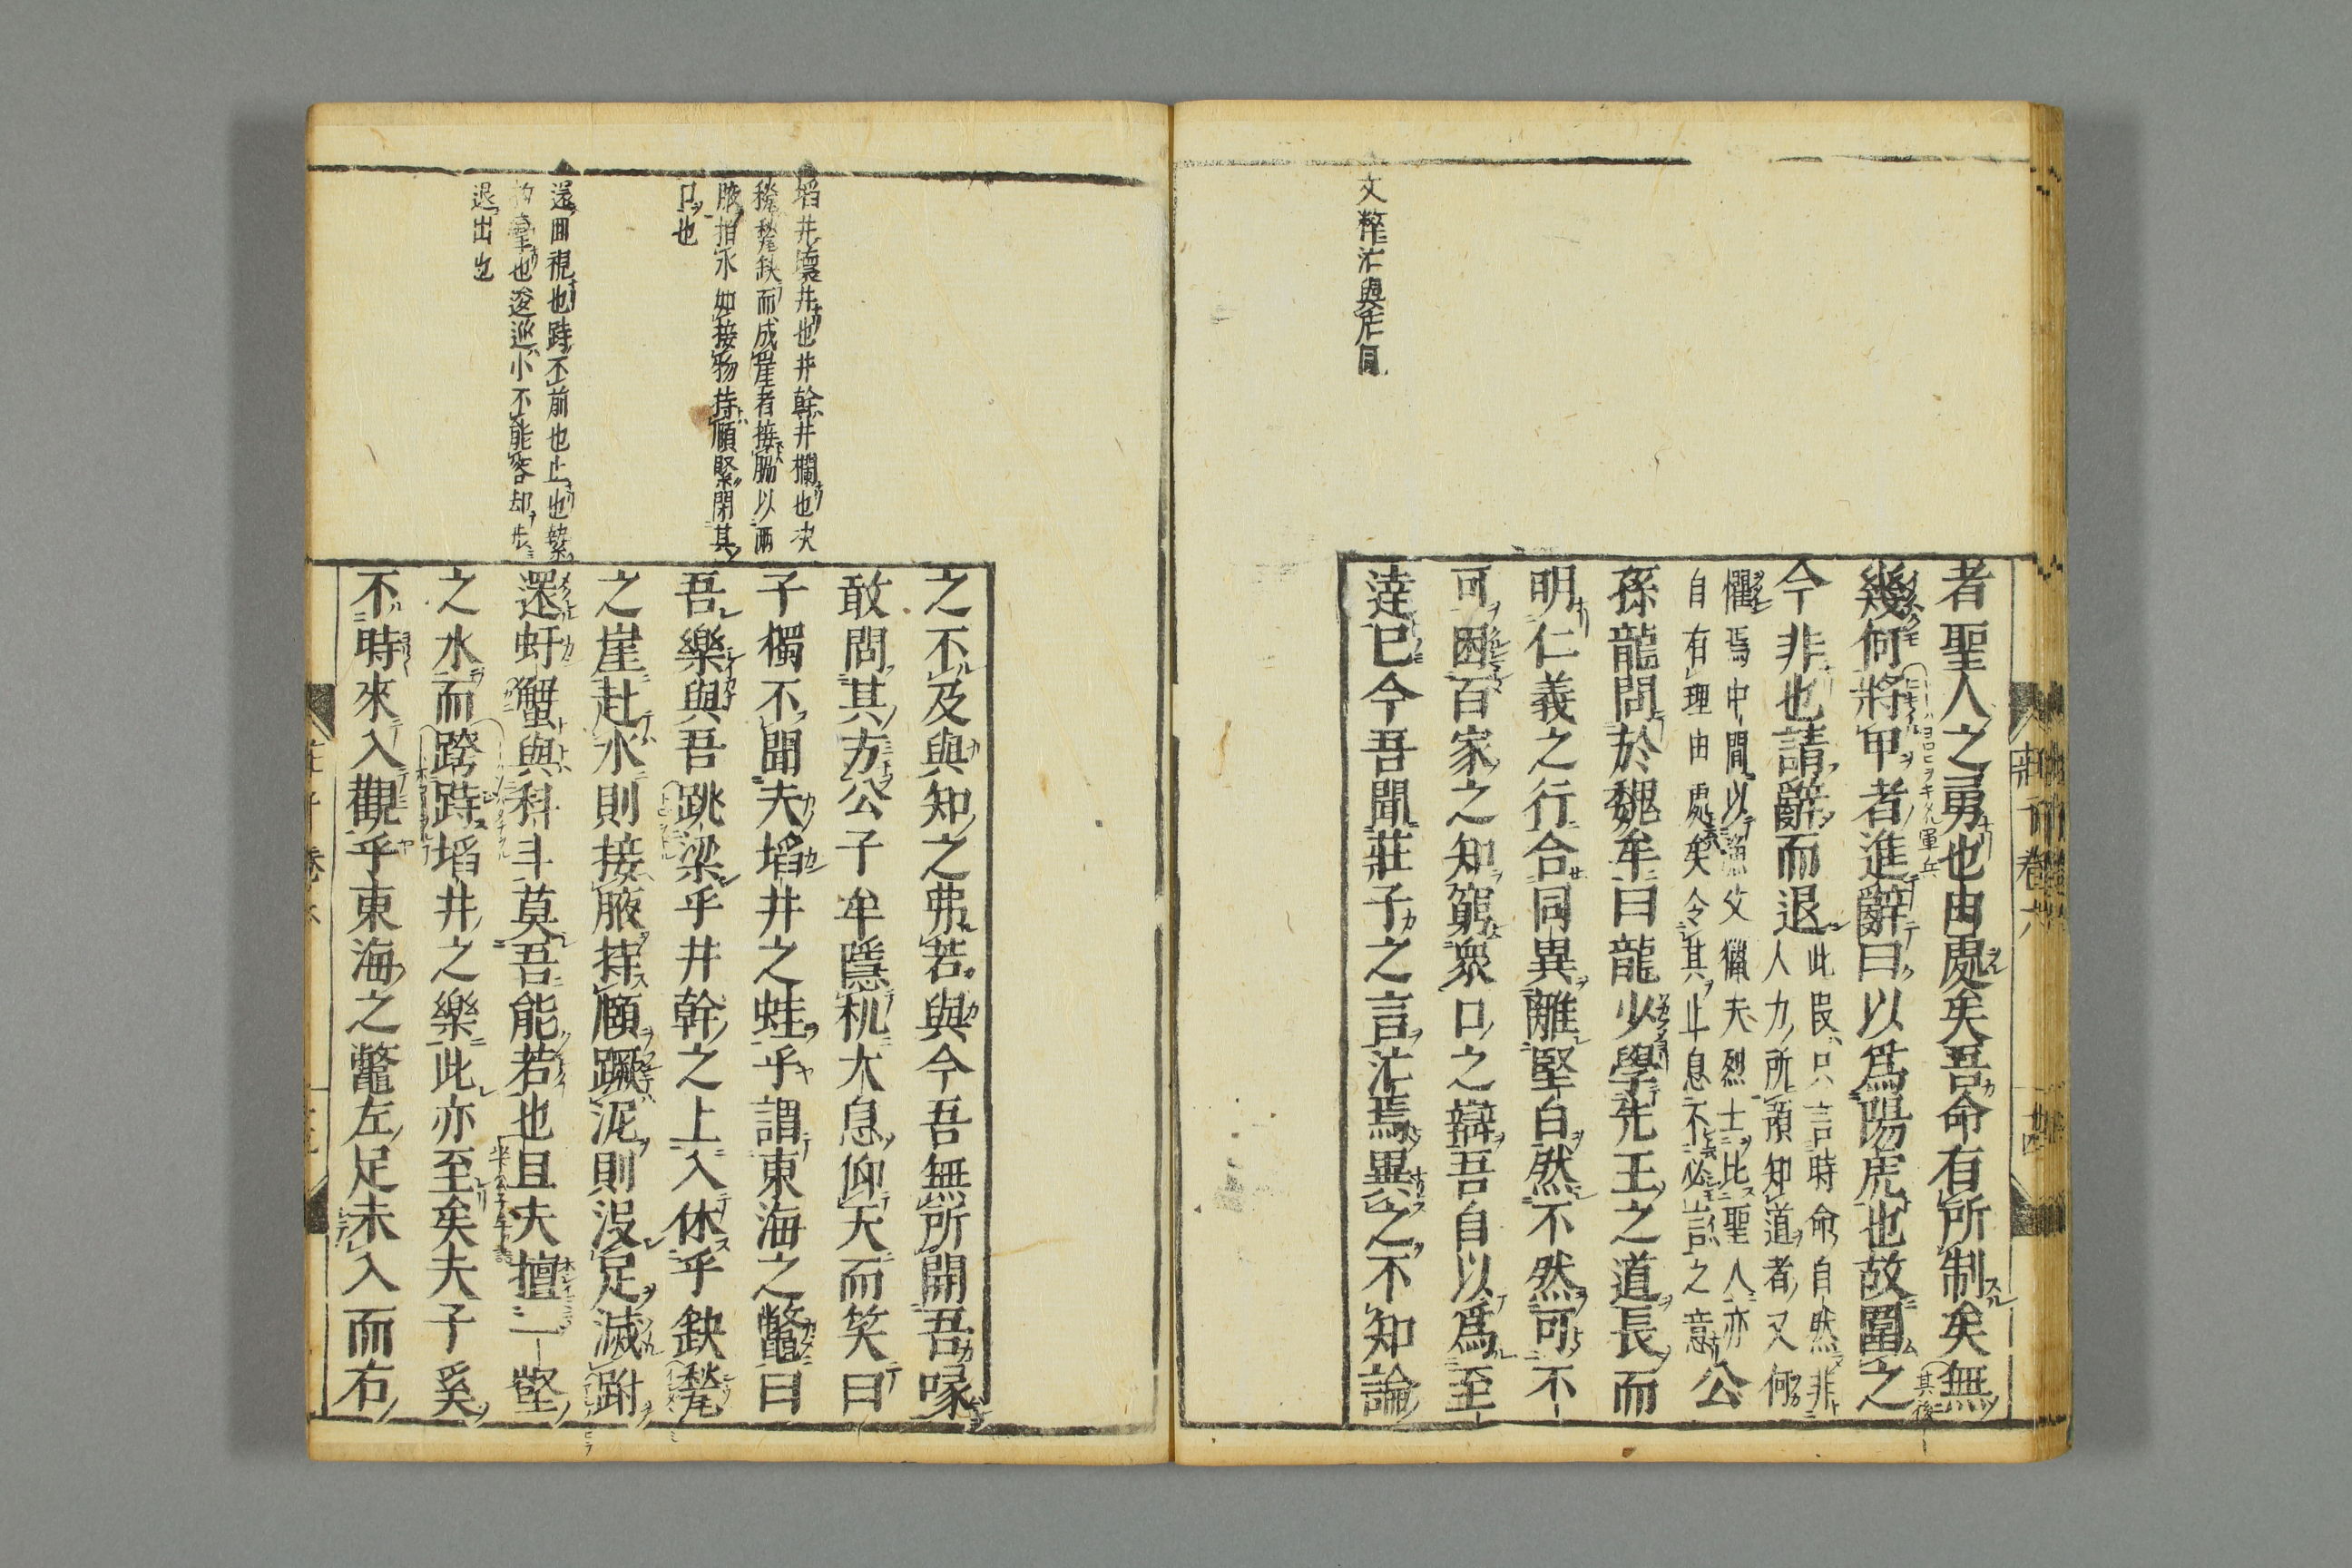 者聖人之勇也由處矣吾命有所制矣無
幾何將甲者進辭曰以爲陽虎也故圍之
今非也請辭而退
此段只言時命自然非
人力所預知道者又何
懼焉中間以漁父獵夫烈士比聖人亦
自有理由處矣令其止息不必言之意
公
孫龍問於魏牟曰龍少學先王之道長而
明仁義之行合同異離堅白然不然可不
可困百家之知窮衆口之辯吾自以爲至
達已今吾聞莊子之言汒焉異之不知論
文粹汒與茫同
莊子卷六
之不及與知之弗若與今吾無所開吾喙
敢問其方公子牟隱机大息仰天而笑曰
子獨不聞夫埳井之蛙乎謂東海之鼈曰
吾樂與吾跳梁乎井幹之上入休乎缺甃
之崖赴水則接腋持頤蹶泥則沒足滅跗
還虷蟹與科斗莫吾能若也且夫擅一壑
之水而跨跱埳井之樂此亦至矣夫子奚
不時來入觀乎東海之鼈左足未入而右
埳井壞井也井幹井欄也
甃缺而成崖者接腋以兩
腋拍水如接物持頤緊閉其
口也
還回視也跱不前也止也縶
拘攣也逡巡小不能容却步
退出也